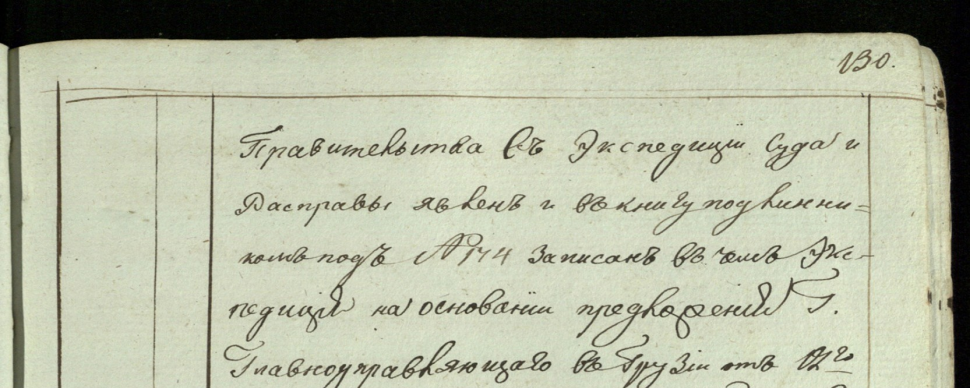 130.
Правительства въ Экспедиціи Суда и
Расправы явленъ и въ книгу подлинни=
комъ подъ №174 записанъ въ чемъ Экс=
педиція на основаніи предложеній Г.
Главноуправляющаго въ Грузіи отъ